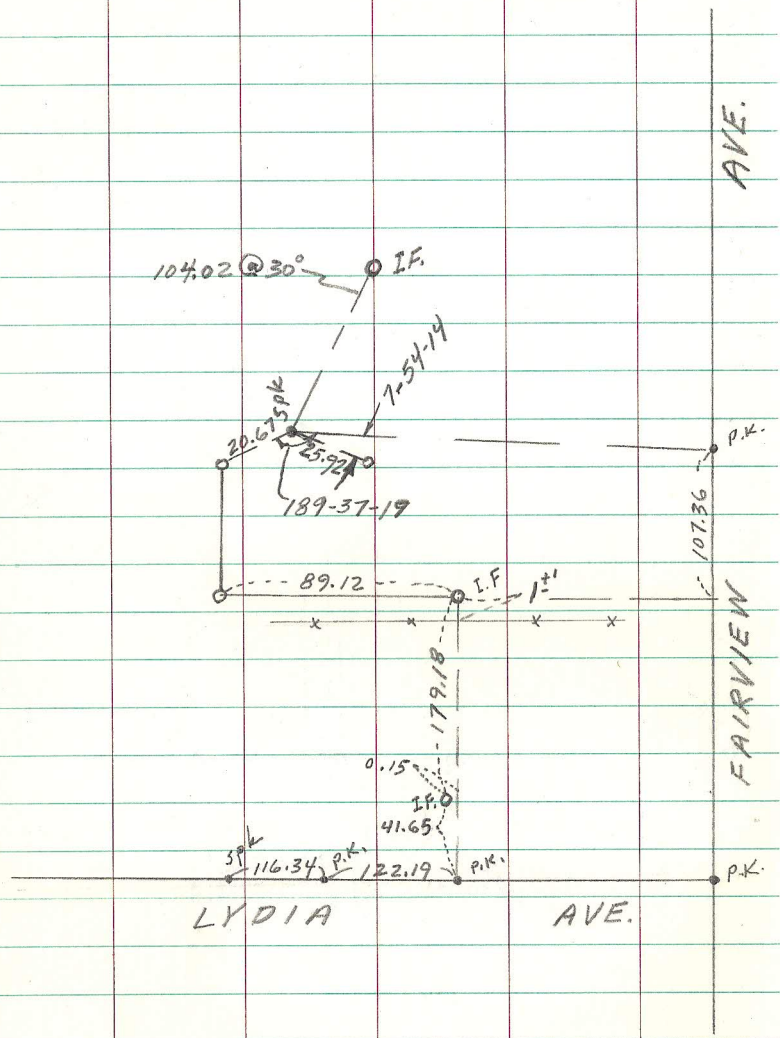 AVE.
104.02 @ 30°
I.F.
7-54-14
Spk
20.67
25.92
P.K.
189-37-19
107.36
89.12
I.F
1±'
179.18
FAIRVIEW
0.15
I.F.
41.65
Spk
116.34
P.K.
122.19
P.K.
P.K.
LYDIA AVE.